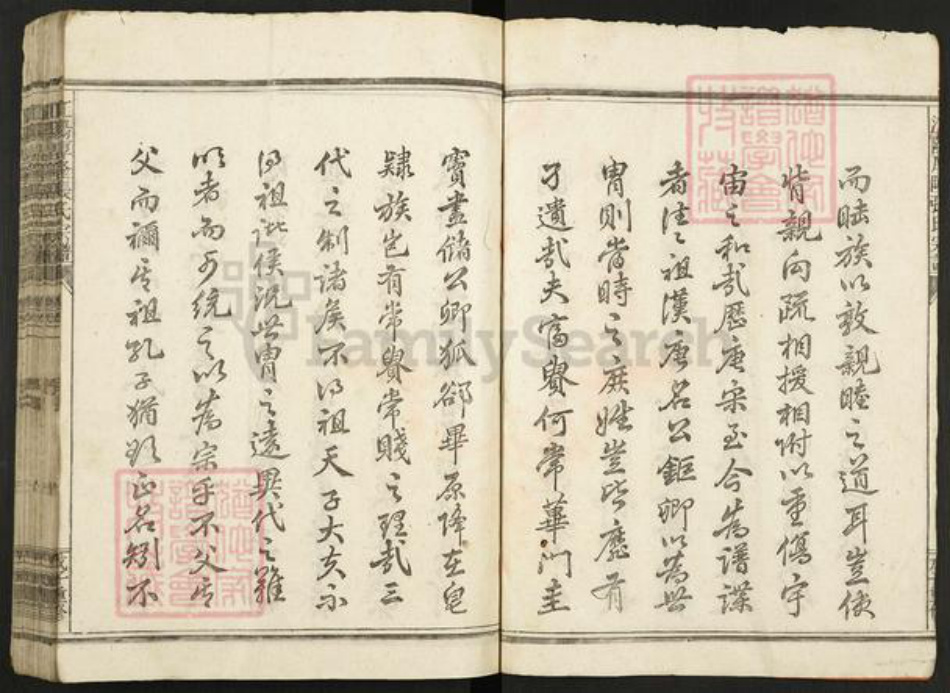 而睦族以敦親睦之道耳豈使
背親向疏相援相附以重傷宇
宙之和哉歷唐宋至今為譜諜
者往々祖漢唐名公鉅卿以為世
冑則當時之庶姓豈皆靡有
孑遺哉夫富貴何常華門圭
竇盡儲公卿狐郤畢原降在皂
隸族豈有常貴常賤之理哉三
代之制諸侯不得祖天子大夫不
得祖諸侯況世冑之遠異代之雖
以者而可統之以為宗乎不父其
父而禰其祖孔子猶欲正名矧不
FamilySearch